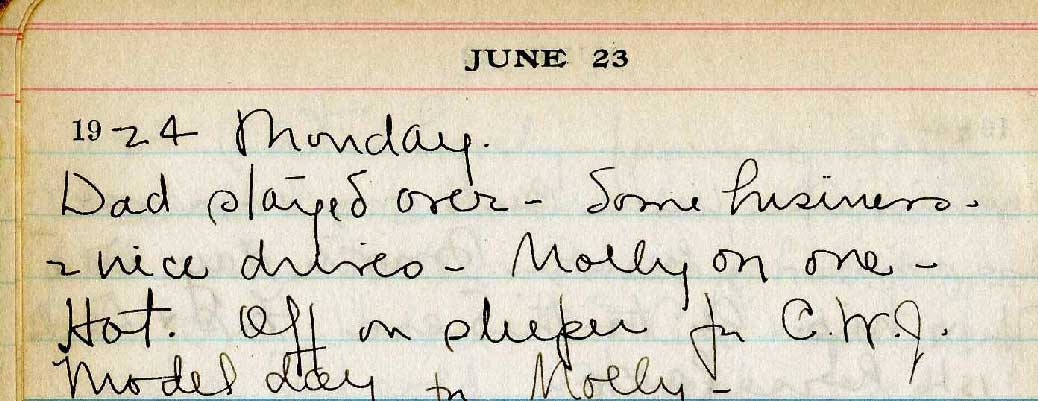 JUNE 23
1924 Monday.
Dad stayed over - Some business.
2 nice drives - Molly on one -
Hot. Off on sleeper for C.W.J.
Model day for Molly -